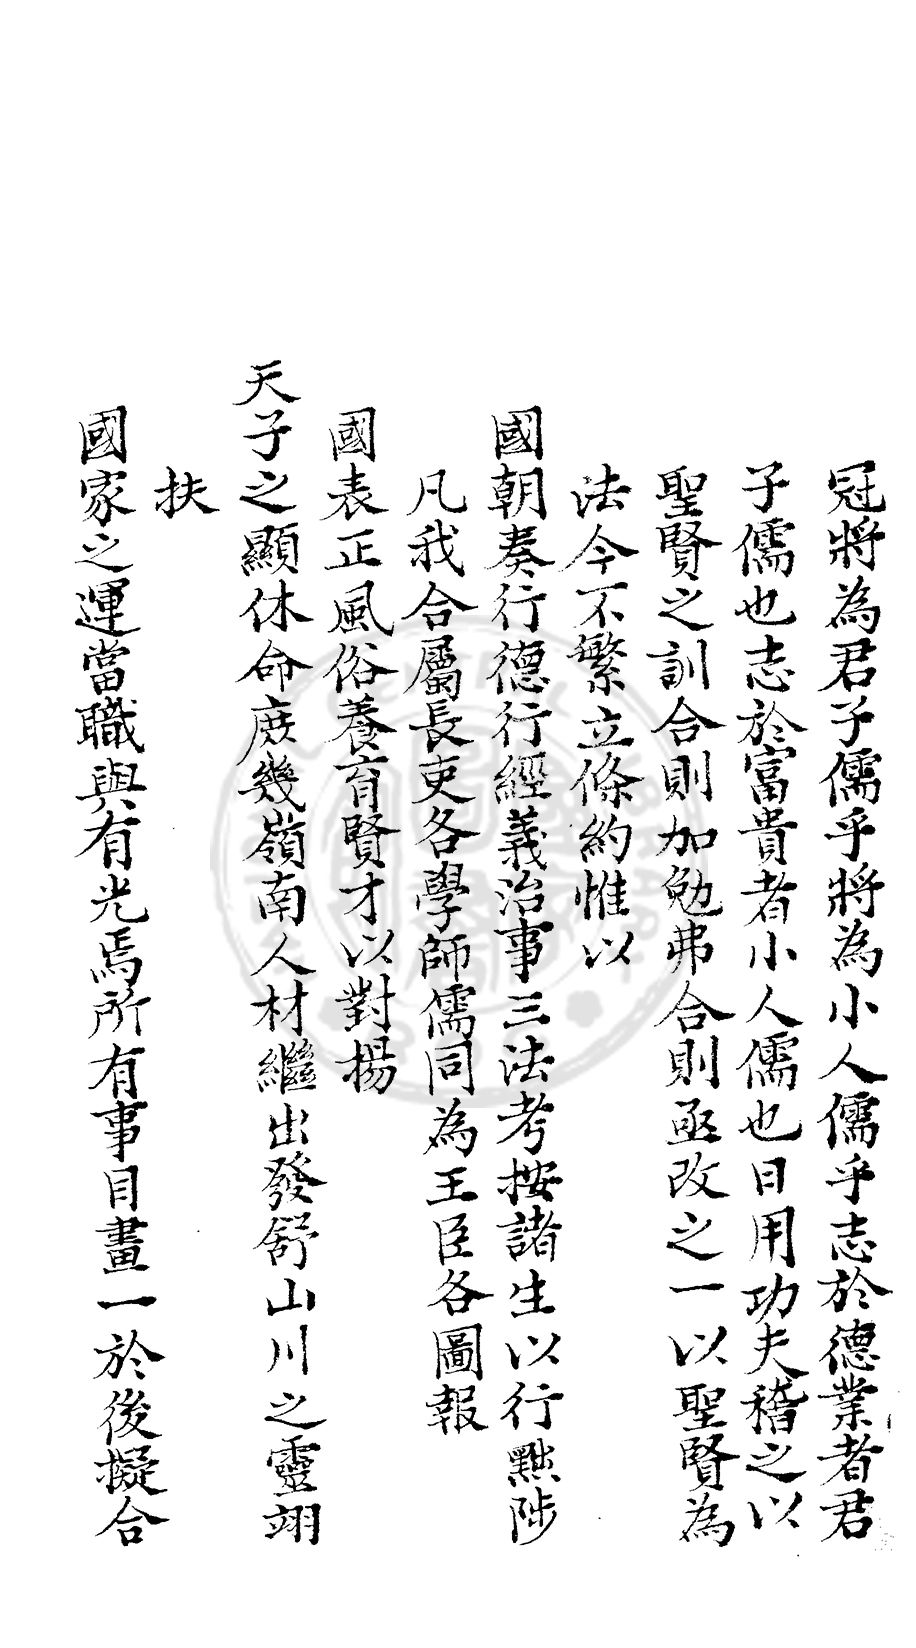 冠將為君子儒乎將為小人儒乎志於德業者君
子儒也志於富貴者小人儒也日用功夫稽之以
聖賢之訓合則加勉弗合則亟改之一以聖賢為
法今不繁立條約惟以
國朝奏行德行經義治事三法考按諸生以行黜陟
凡我合屬長吏各學師儒同為王臣各圖報
國表正風俗養育賢才以對揚
天子之顯休命庶幾嶺南人材繼出發舒山川之靈翊
扶
國家之運當職與有光焉所有事目畫一於後擬合